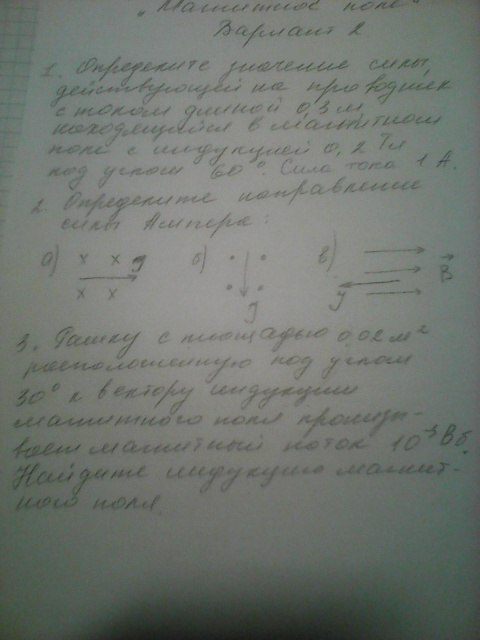 „Магнитное поле"
Вариант 2
1. Определите значение силы,
действующей на проводник
с током длиной 0,3 м,
находящийся в магнитном
поле с индукцией 0,2 Тл
под углом 60°. Сила тока 1 А.
2. Определите направление
силы Ампера:
а) x x J б) в) B
x x J J
3. Рамку с площадью 0,02 м²
расположенную под углом
30° к вектору индукции
магнитного поля пронизы-
вает магнитный поток 10⁻³ Вб.
Найдите индукцию магнит-
ного поля.